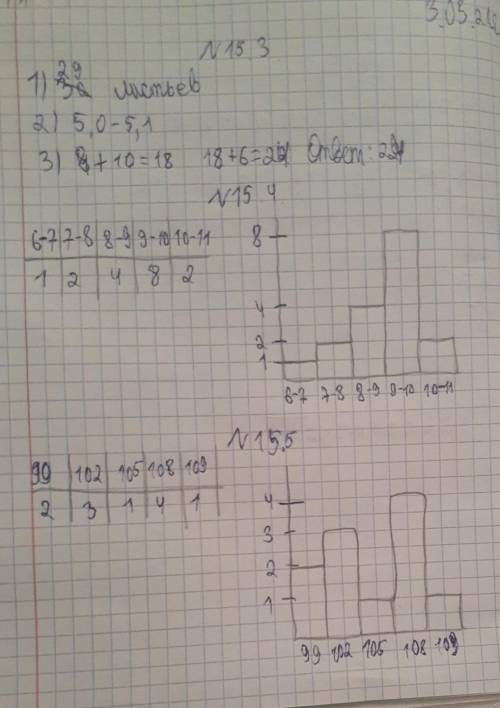 3.03.2
N 15 3
1) 29 листьев
2) 5,0-5,1
3) 8 + 10 = 18 18+6= Ответ:
N 15 4
6-7 7-8 8-9 9-10 10-11
1 2 4 8 2
8
4
2
1
6-7 7-8 8-9 9-10 10-11
N 15,5
99 102 105 108 109
2 3 1 4 1
4
3
2
1
99 102 105 108 109